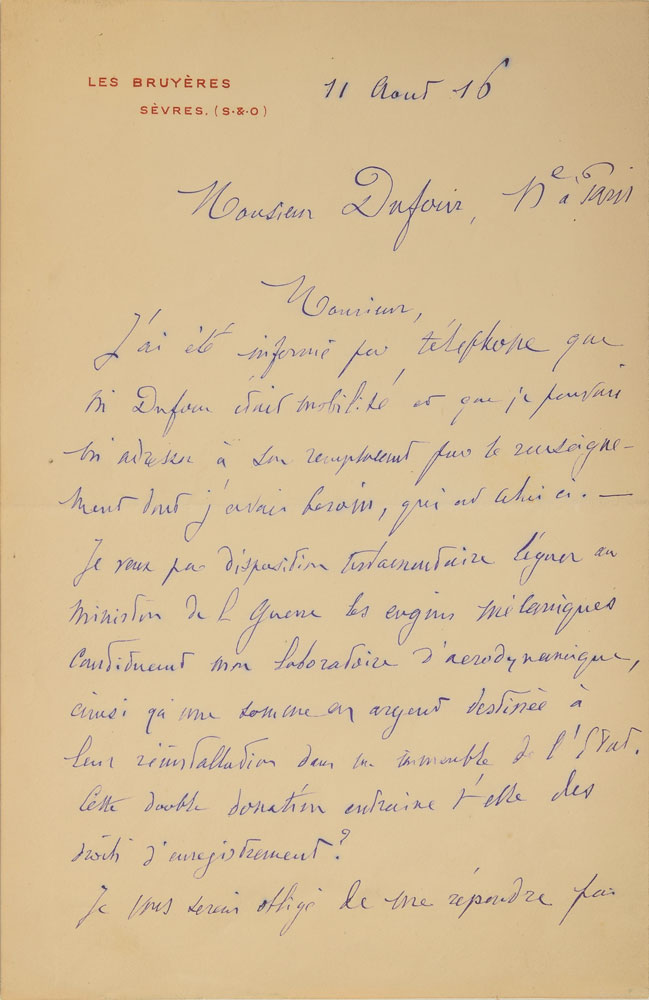 LES BRUYÈRES
SÈVRES. (S.&.O)
11 Aout 16
Monsieur Dufour, Nre à Paris
Monsieur,
J'ai été informé par téléphone que
Mr Dufour était mobilisé et que je pouvais
m'adresser à son remplaçant pour le renseigne-
ment dont j'avais besoin, qui est celui ci. —
Je veux par disposition testamentaire léguer au
Ministère de la Guerre les engins mécaniques
constituant mon laboratoire d'aérodynamique,
ainsi qu'une somme en argent destinée à
leur réinstallation dans un immeuble de l'État.
Cette double donation entraine t'elle des
droits d'enregistrement?
Je vous serais obligé de me répondre par